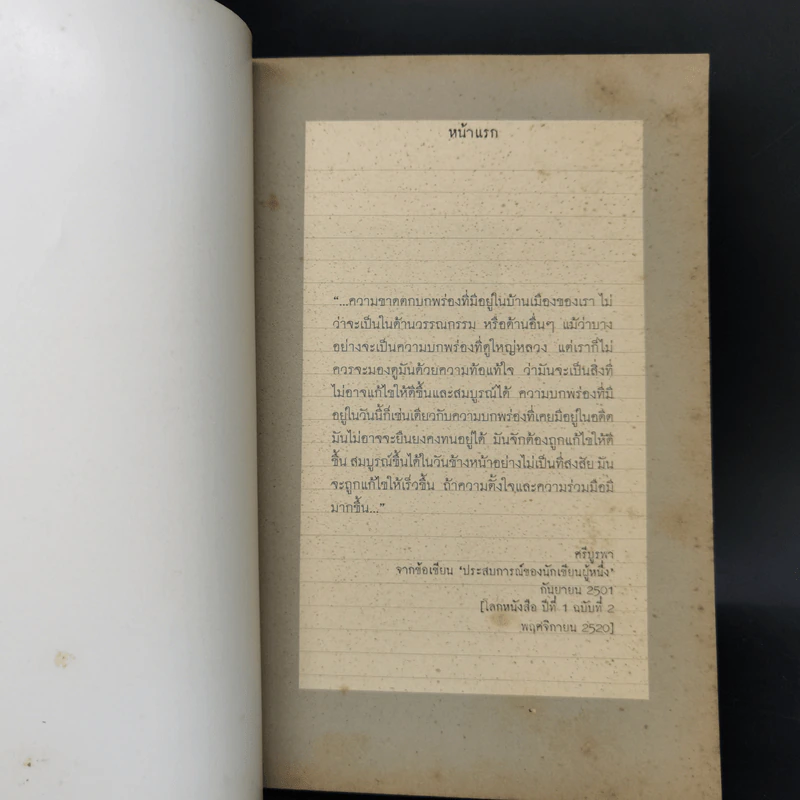 หน้าแรก
“...ความขาดตกบกพร่องที่มีอยู่ในบ้านเมืองของเรา ไม่
ว่าจะเป็นในด้านวรรณกรรม หรือด้านอื่นๆ แม้ว่าบาง
อย่างจะเป็นความบกพร่องที่ดูใหญ่หลวง แต่เราก็ไม่
ควรจะมองดูมันด้วยความท้อแท้ใจ ว่ามันจะเป็นสิ่งที่
ไม่อาจแก้ไขให้ดีขึ้นและสมบูรณ์ได้ ความบกพร่องที่มี
อยู่ในวันนี้ก็เช่นเดียวกับความบกพร่องที่เคยมีอยู่ในอดีต
มันไม่อาจจะยืนยงคงทนอยู่ได้ มันจักต้องถูกแก้ไขให้ดี
ขึ้น สมบูรณ์ขึ้นได้ในวันข้างหน้าอย่างไม่เป็นที่สงสัย มัน
จะถูกแก้ไขให้เร็วขึ้น ถ้าความตั้งใจและความร่วมมือมี
มากขึ้น...”
ศรีบูรพา
จากข้อเขียน ‘ประสบการณ์ของนักเขียนผู้หนึ่ง’
กันยายน 2501
[โลกหนังสือ ปีที่ 1 ฉบับที่ 2
พฤศจิกายน 2520]